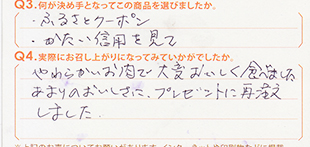 Q3.何が決め手となってこの商品を選びましたか。
・ふるさとクーポン
・かたい信用を見て
Q4.実際にお召し上がりになってみていかがでしたか。
やわらかいお肉で大変おいしく食べました
あまりのおいしさに、プレゼントに再注文
しました.